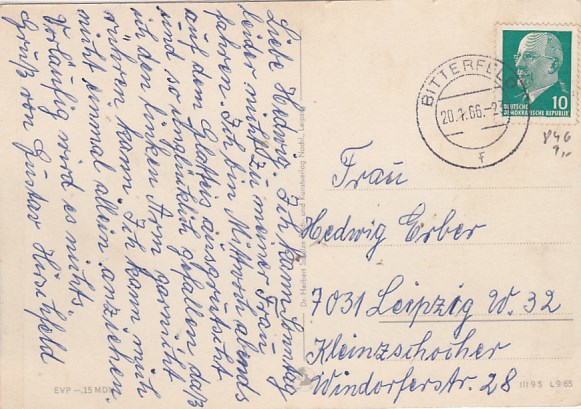 Liebe Hedwig. Ich kann Sonntag
leider nicht zu meiner Frau
fahren. Ich bin Mittwoch abends
auf dem Glatteis ausgerutscht
und so unglücklich gefallen, daß
ich den linken Arm garnicht
rühren kann. Ich kann mich
nicht einmal allein anziehen.
Vorläufig wird es nichts.
Gruß von Gustav Hirschfeld
EVP –.15 MDN
Dr. Herbert und Kunstverlag Nachf., Leipzig
BITTERFELD
20.1.66.-2
f
10
DEUTSCHE
DEMOKRATISCHE REPUBLIK
846
Frau
Hedwig Erber
7031 Leipzig W. 32
Kleinzschocher
Windorferstr. 28
III 9 5 L 9/65